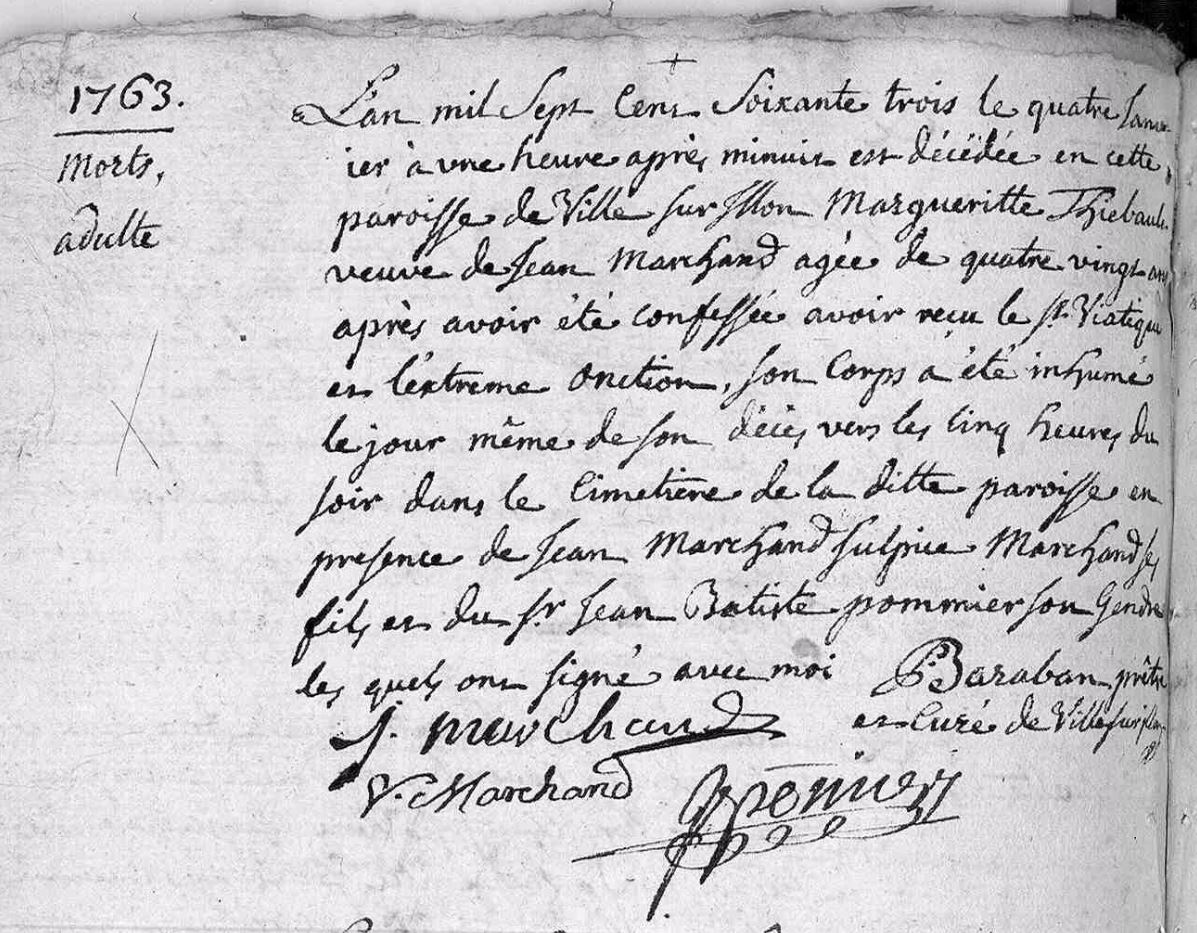 1763.
morts,
adulte
L'an mil Sept Cent Soixante trois le quatre Janv
ier à une heure après minuit est décédée en cette
paroisse de Ville sur Illon Margueritte Thiebault
veuve de Jean Marchand agée de quatre vingt ans
après avoir été confessée avoir reçu le St. Viatique
et l'extreme onction, son Corps a été inhumé
le jour même de son décès vers les Cinq heures du
soir dans le Cimetière de la ditte paroisse en
presence de Jean Marchand Sulpice Marchand ses
fils et du Sr Jean Batiste pommier son Gendre
les quels ont signé avec moi Baraban prêtre
et Curé de Ville sur
J. marchand
Marchand